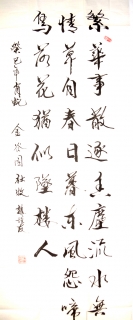 繁華事散逐香塵流水無
情草自春日暮东風怨啼
鳥落花猶似墜樓人
癸巳年 金谷園 杜牧